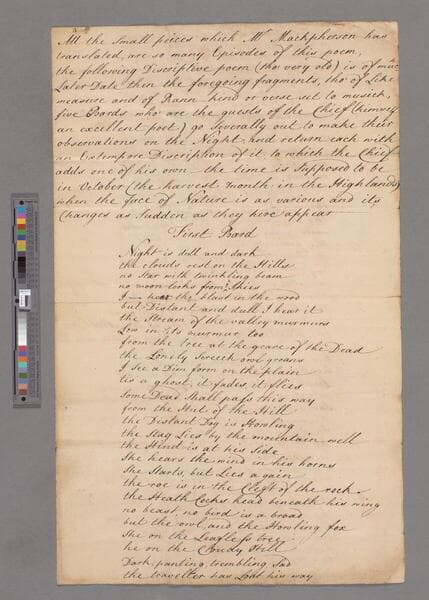 All the small peices which Mr Mackpherson has
translated, are so many Episodes of this poem,
the following Descriptive poem (tho very old) is of much
Later Date then the foregoing fragments, tho of Like
measure and of Rann kind or verse set to musick,
five Bards who are the guests of the Chief (himself
an excellent poet) go severally out to make their
observations on the Night, and return each with
an Extempore Description of it to which the Chief
adds one of his own – the time is supposed to be
in October (the harvest month in the Highlands)
when the face of Nature is as various and its
Changes as sudden as they here appear
First Bard
Night is dull and dark
the clouds rest on the Hills
no star with twinkling beam
no moon looks from skies
I hear the blast in the wood
but Distant and dull I hear it
the Stream of the valley murmurs
Low in its murmur too
from the tree at the grave of the Dead
the Lonely Screech owl groans
I see a Dim form on the plain
tis a ghost, it fades, it flies
Some Dead Shall pass this way
from the Hut of the Hill
the Distant Dog is Howling
the Stag Lies by the mountain well
the Hind is at his Side
She hears the wind in his horns
She Starts, but Lies again
the roe is in the Cleft of the rock
the Heath Cocks head beneath his wing
no beast, no bird is abroad
but the owl, and the Howling fox
She on the Leafless tree
he on the Cloudy Hill
Dark, panting, trembling, Sad
the traveller has Lost his way